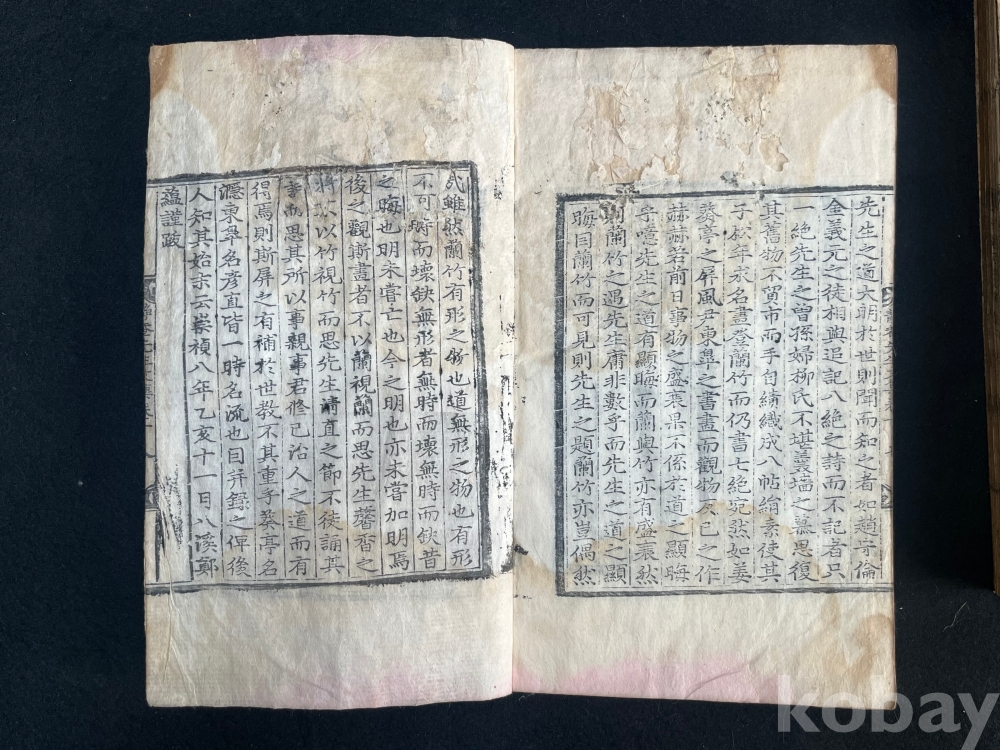 先生之道大明於世則聞而知之者如趙守倫
金義元之徒相與追記八絶之詩而不記者只
一絶先生之曾孫婦柳氏不堪羹墻之慕思復
其舊物不貿市而手自績織成八帖綃素使其
子松年求名畫登蘭竹而仍書七絶宛然如姜
葵亭之屏風尹東皐之書畫而觀物辰巳之作
赫赫若前日事物之盛衰果不係於道之顯晦
乎噫先生之道有顯晦而蘭與竹亦有盛衰然
則蘭竹之遇先生庸非數乎而先生之道之顯
晦因蘭竹而可見則先生之題蘭竹亦豈偶然
哉雖然蘭竹有形之物也道無形之物也有形
不可時而壞缺無形者無時而壞無時而缺昔
之晦也明未嘗亡也今之明也亦未嘗加明焉
後之觀斯畫者不以蘭視蘭而思先生馨香之
不以竹視竹而思先生清直之節不徒誦其
而思其所以事親事君修己治人之道而有
得焉則斯屏之有補於世教不其重乎葵亭名
東皐名彦直皆一時名流也因幷錄之俾後
人知其始末云崇禎八年乙亥十一月八溪鄭
蘊謹跋
kobay